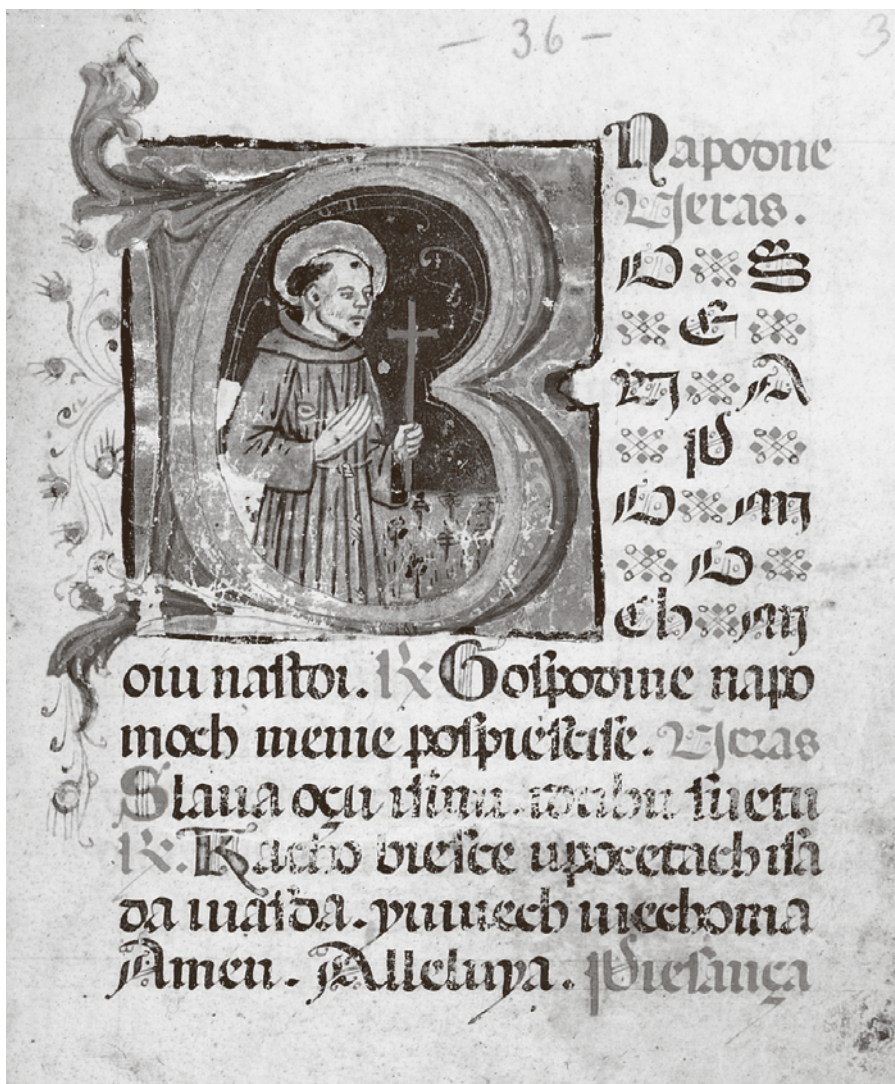 — 36 —
3
Napodne
Vjeras.
O S
E
N A
P
O M
O
Ch M
oiu nastoi. R Gospodine napo
moch menie pospiescise. Vjeras
Slaua oçu isinu. iduhu suetu
R. Kacho biesce upocetach isa
da uasda. yuuiech uiechoma
Amen. Alleluya. Piesança